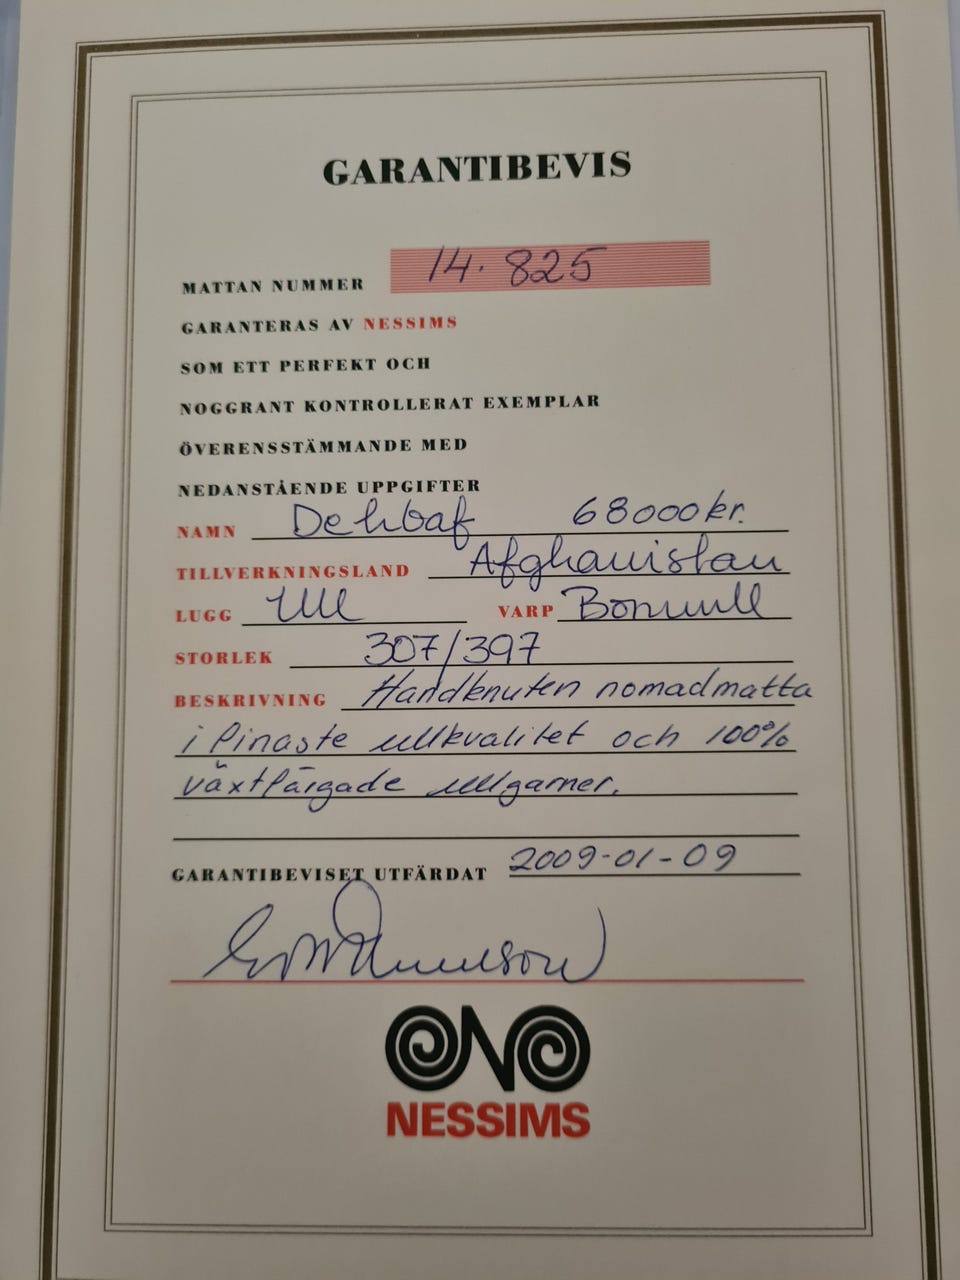 GARANTIBEVIS
MATTAN NUMMER 14.825
GARANTERAS AV NESSIMS
SOM ETT PERFEKT OCH
NOGGRANT KONTROLLERAT EXEMPLAR
ÖVERENSSTÄMMANDE MED
NEDANSTÅENDE UPPGIFTER
NAMN Dehbaf 68000kr.
TILLVERKNINGSLAND Afghanistan
LUGG Ull VARP Bomull
STORLEK 307/397
BESKRIVNING Handknuten nomadmatta
i finaste ullkvalitet och 100%
växtfärgade ullgarner.
GARANTIBEVISET UTFÄRDAT 2009-01-09
NESSIMS